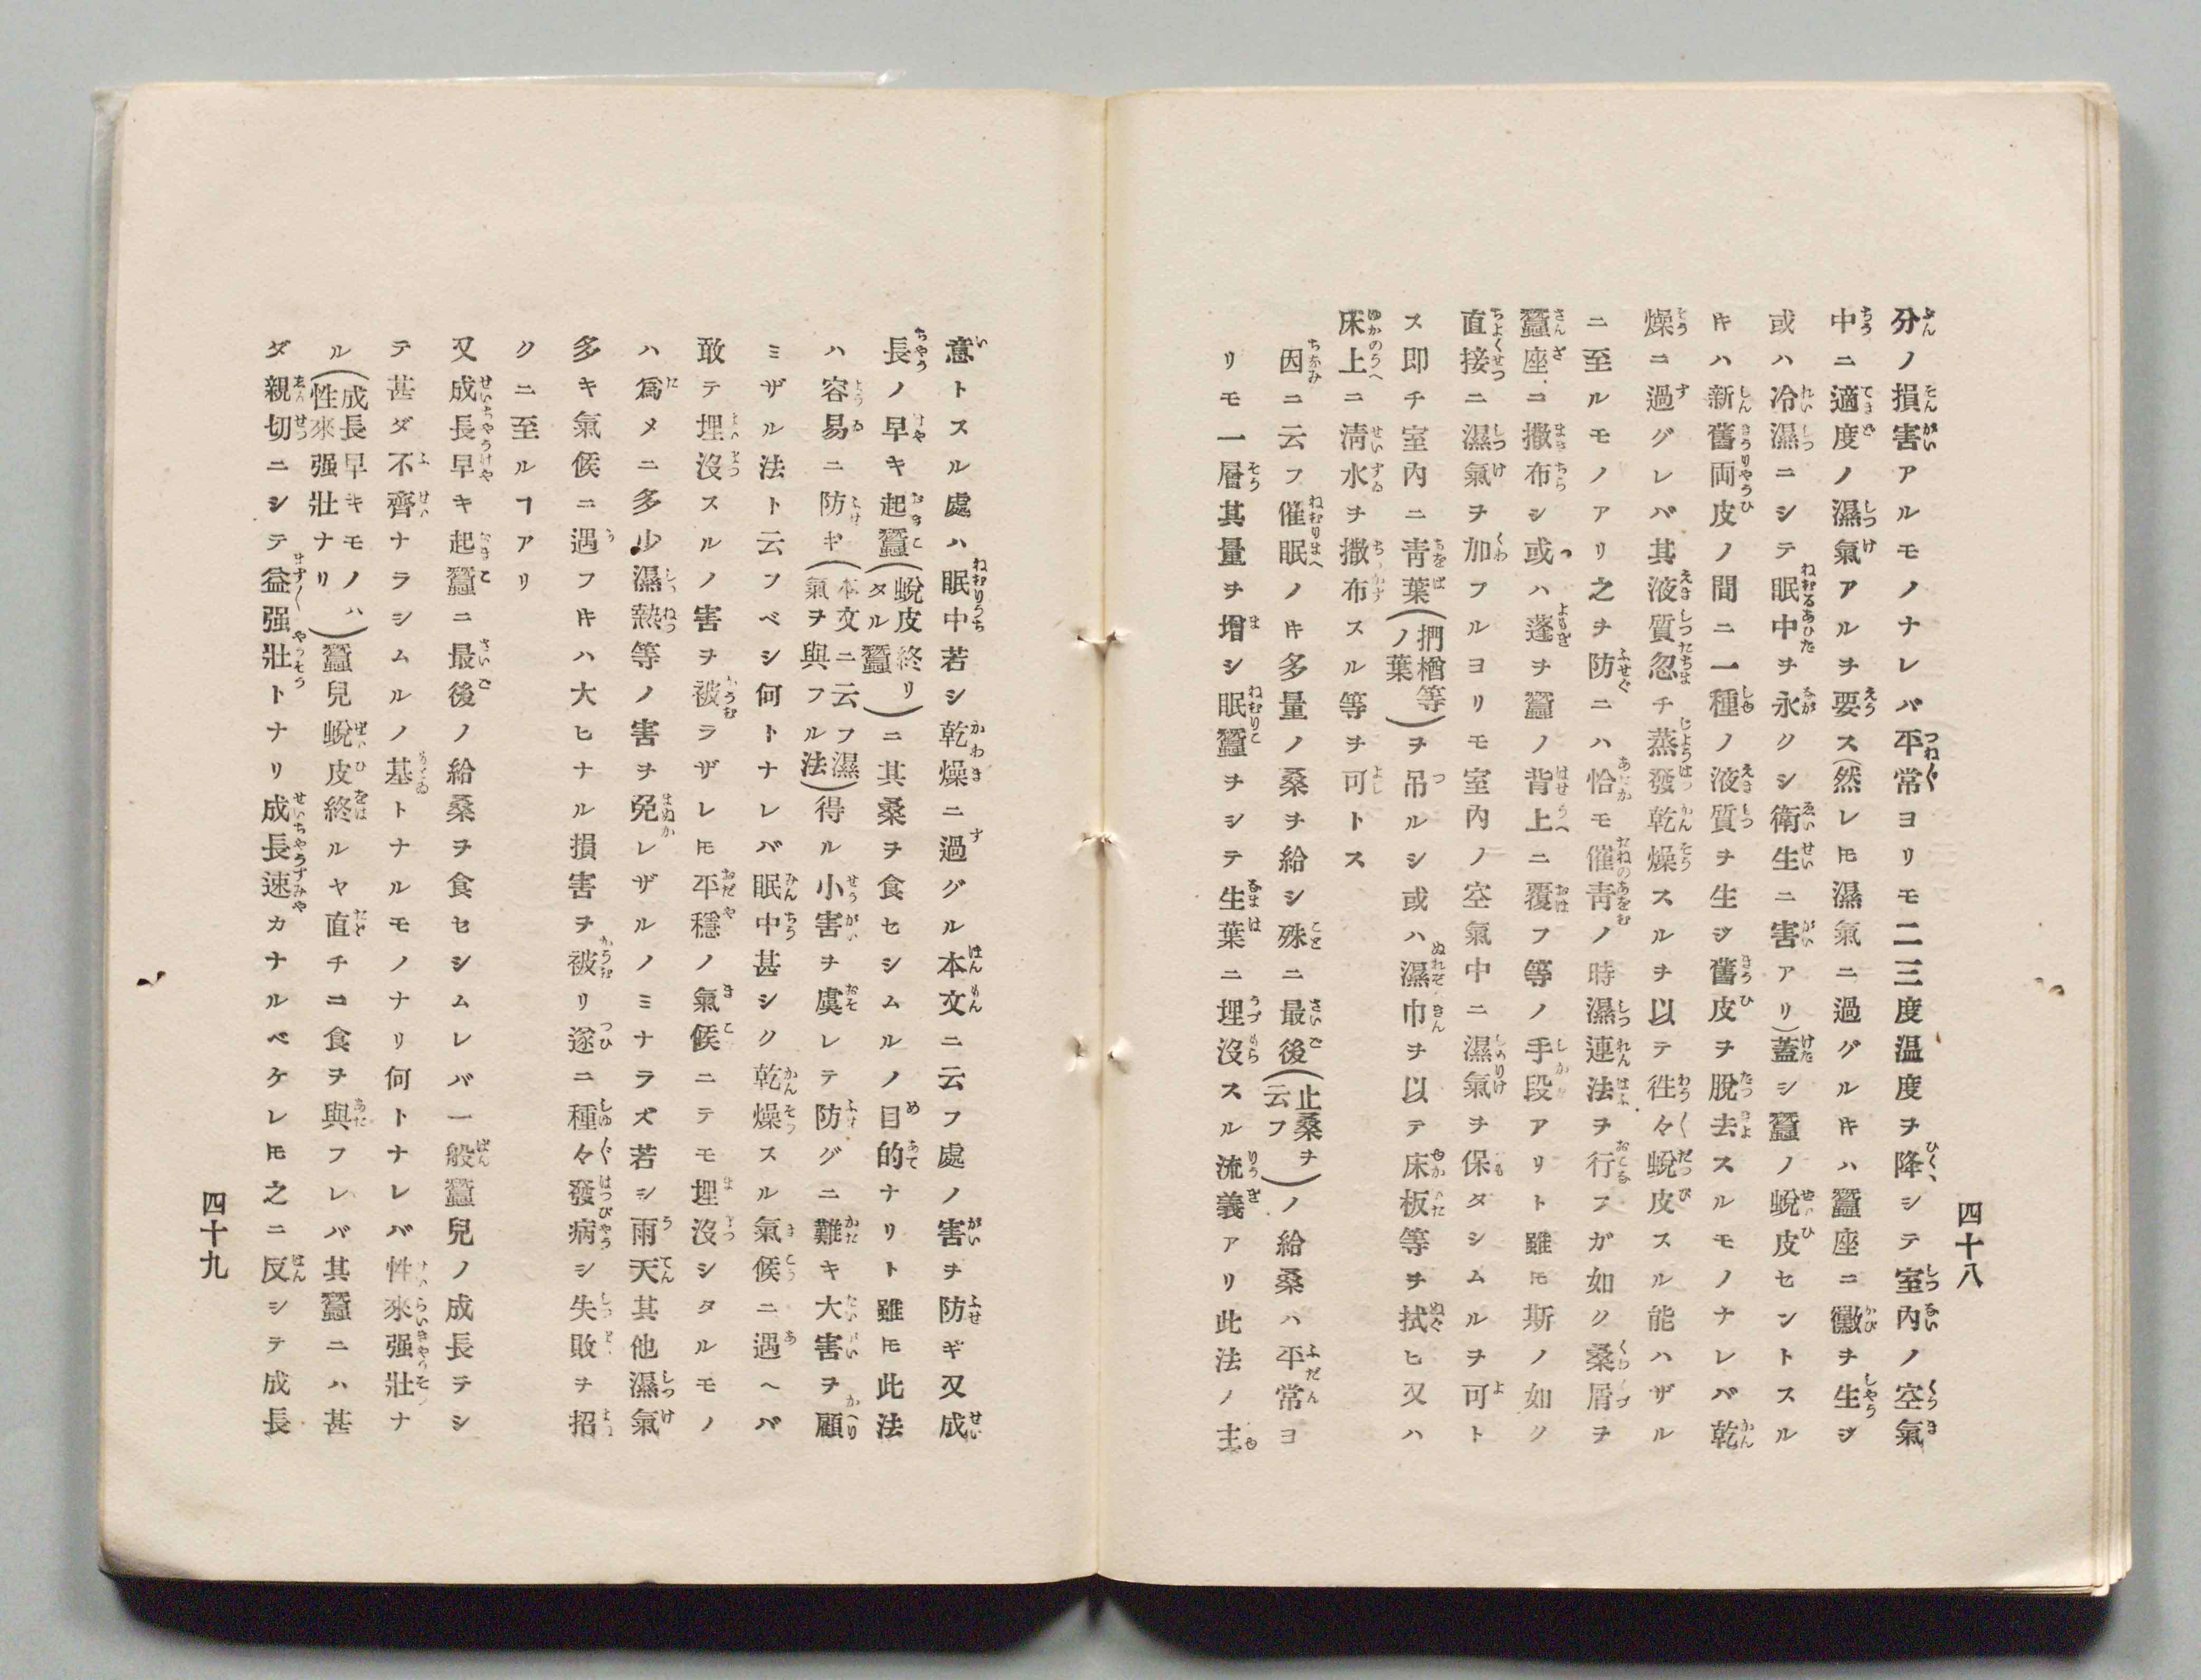 分ノ損害アルモノナレバ平常ヨリモ二三度温度ヲ降シテ室內ノ空氣
中ニ適度ノ濕氣アルヲ要ス(然レ𪜈濕氣ニ過グルキハ蠶座ニ黴ヲ生ジ
或ハ冷濕ニシテ眠中ヲ永クシ衛生ニ害アリ)蓋シ蠶ノ蛻皮セントスル
キハ新舊両皮ノ間ニ一種ノ液質ヲ生ジ舊皮ヲ脫去スルモノナレバ乾
燥ニ過グレバ其液質忽チ蒸發乾燥スルヲ以テ徃々蛻皮スル能ハザル
ニ至ルモノアリ之ヲ防ニハ恰モ催靑ノ時濕連法ヲ行フガ如ク桑屑ヲ
蠶座ニ撒布シ或ハ蓬ヲ蠶ノ背上ニ覆フ等ノ手段アリト雖𪜈斯ノ如ク
直接ニ濕氣ヲ加フルヨリモ室內ノ空氣中ニ濕氣ヲ保タシムルヲ可ト
ス即チ室內ニ靑葉(楊檜等ノ葉)ヲ吊ルシ或ハ濕巾ヲ以テ床板等ヲ拭ヒ又ハ
床上ニ淸水ヲ撒布スル等ヲ可トス
因ニ云フ催眠ノキ多量ノ桑ヲ給シ殊ニ最後(止桑ヲ云フ)ノ給桑ハ平常ヨ
リモ一層其量ヲ增シ眠蠶ヲシテ生葉ニ埋沒スル流義アリ此法ノ主
四十八
意トスル處ハ眠中若シ乾燥ニ過グル本文ニ云フ處ノ害ヲ防ギ又成
長ノ早キ起蠶(蛻皮終リタル蠶)ニ其桑ヲ食セシムルノ目的ナリト雖𪜈此法
ハ容易ニ防ギ(本文ニ云フ濕氣ヲ與フル法)得ル小害ヲ虞レテ防グニ難キ大害ヲ顧
ミザル法ト云フベシ何トナレバ眠中甚シク乾燥スル氣候ニ遇ヘバ
敢テ埋沒スルノ害ヲ被ラザレ𪜈平穩ノ氣候ニテモ埋沒シタルモノ
ハ爲メニ多少濕熱等ノ害ヲ免レザルノミナラズ若シ雨天其他濕氣
多キ氣候ニ遇フキハ大ヒナル損害ヲ被リ遂ニ種々發病シ失敗ヲ招
クニ至ルヿアリ
又成長早キ起蠶ニ最後ノ給桑ヲ食セシムレバ一般蠶兒ノ成長テシ
テ甚ダ不齊ナラシムルノ基トナルモノナリ何トナレバ性來强壯ナ
ル(成長早キモノハ性來强壯ナリ)蠶兒蛻皮終ルヤ直チニ食ヲ與フレバ其蠶ニハ甚
ダ親切ニシテ益强壯トナリ成長速カナルベケレ𪜈之ニ反シテ成長
四十九